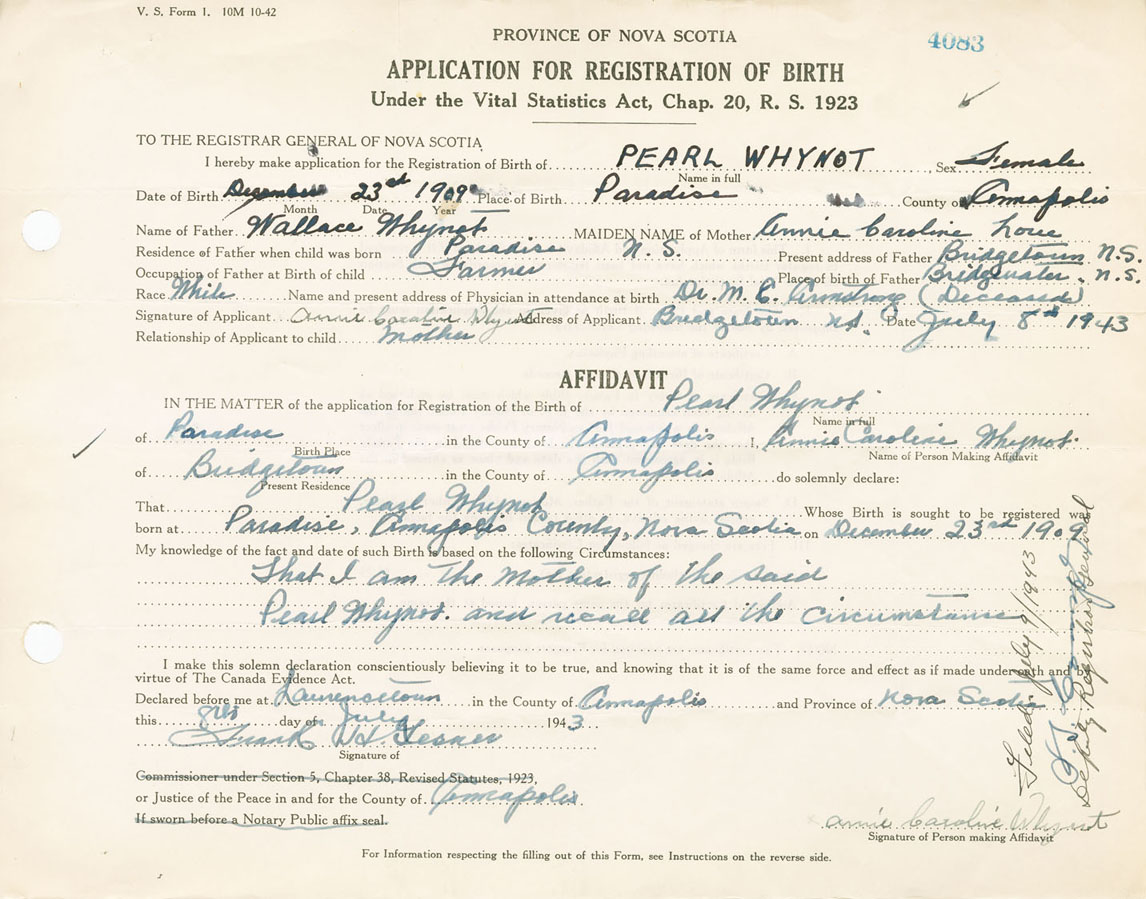 V. S. Form 1. 10M 10-42
PROVINCE OF NOVA SCOTIA
4083
APPLICATION FOR REGISTRATION OF BIRTH
Under the Vital Statistics Act, Chap. 20, R. S. 1923
TO THE REGISTRAR GENERAL OF NOVA SCOTIA
I hereby make application for the Registration of Birth of PEARL WHYNOT Sex Female
Name in full
Date of Birth December 23rd 1909 Place of Birth Paradise County of Annapolis
Month Date Year
Name of Father Wallace Whynot MAIDEN NAME of Mother Annie Caroline
Residence of Father when child was born Paradise N.S. Present address of Father Bridgetown N.S.
Occupation of Father at Birth of child Farmer Place of birth of Father Bridgewater. N.S.
Race White Name and present address of Physician in attendance at birth Dr. M. E. Armstrong (Deceased)
Signature of Applicant Annie Caroline Whynot Address of Applicant Bridgetown N.S. Date July 8th 1943
Relationship of Applicant to child Mother
AFFIDAVIT
IN THE MATTER of the application for Registration of the Birth of Pearl Whynot
Name in full
of Paradise in the County of Annapolis I, Annie Caroline Whynot
Birth Place Name of Person Making Affidavit
of Bridgetown in the County of Annapolis do solemnly declare:
Present Residence
That Pearl Whynot Whose Birth is sought to be registered was
born at Paradise, Annapolis County, Nova Scotia on December 23rd 1909
My knowledge of the fact and date of such Birth is based on the following Circumstances:
That I am the Mother of the said
Pearl Whynot. and recall all the circumstance
I make this solemn declaration conscientiously believing it to be true, and knowing that it is of the same force and effect as if made under oath and by
virtue of The Canada Evidence Act.
Declared before me at Lawrencetown in the County of Annapolis and Province of Nova Scotia
this 8th day of July 1943
Frank H
Signature of
Commissioner under Section 5, Chapter 38, Revised Statutes, 1923,
or Justice of the Peace in and for the County of Annapolis
If sworn before a Notary Public affix seal.
Annie Caroline Whynot
Signature of Person making Affidavit
For Information respecting the filling out of this Form, see Instructions on the reverse side.
Filed July 9/1943
Deputy Registrar General